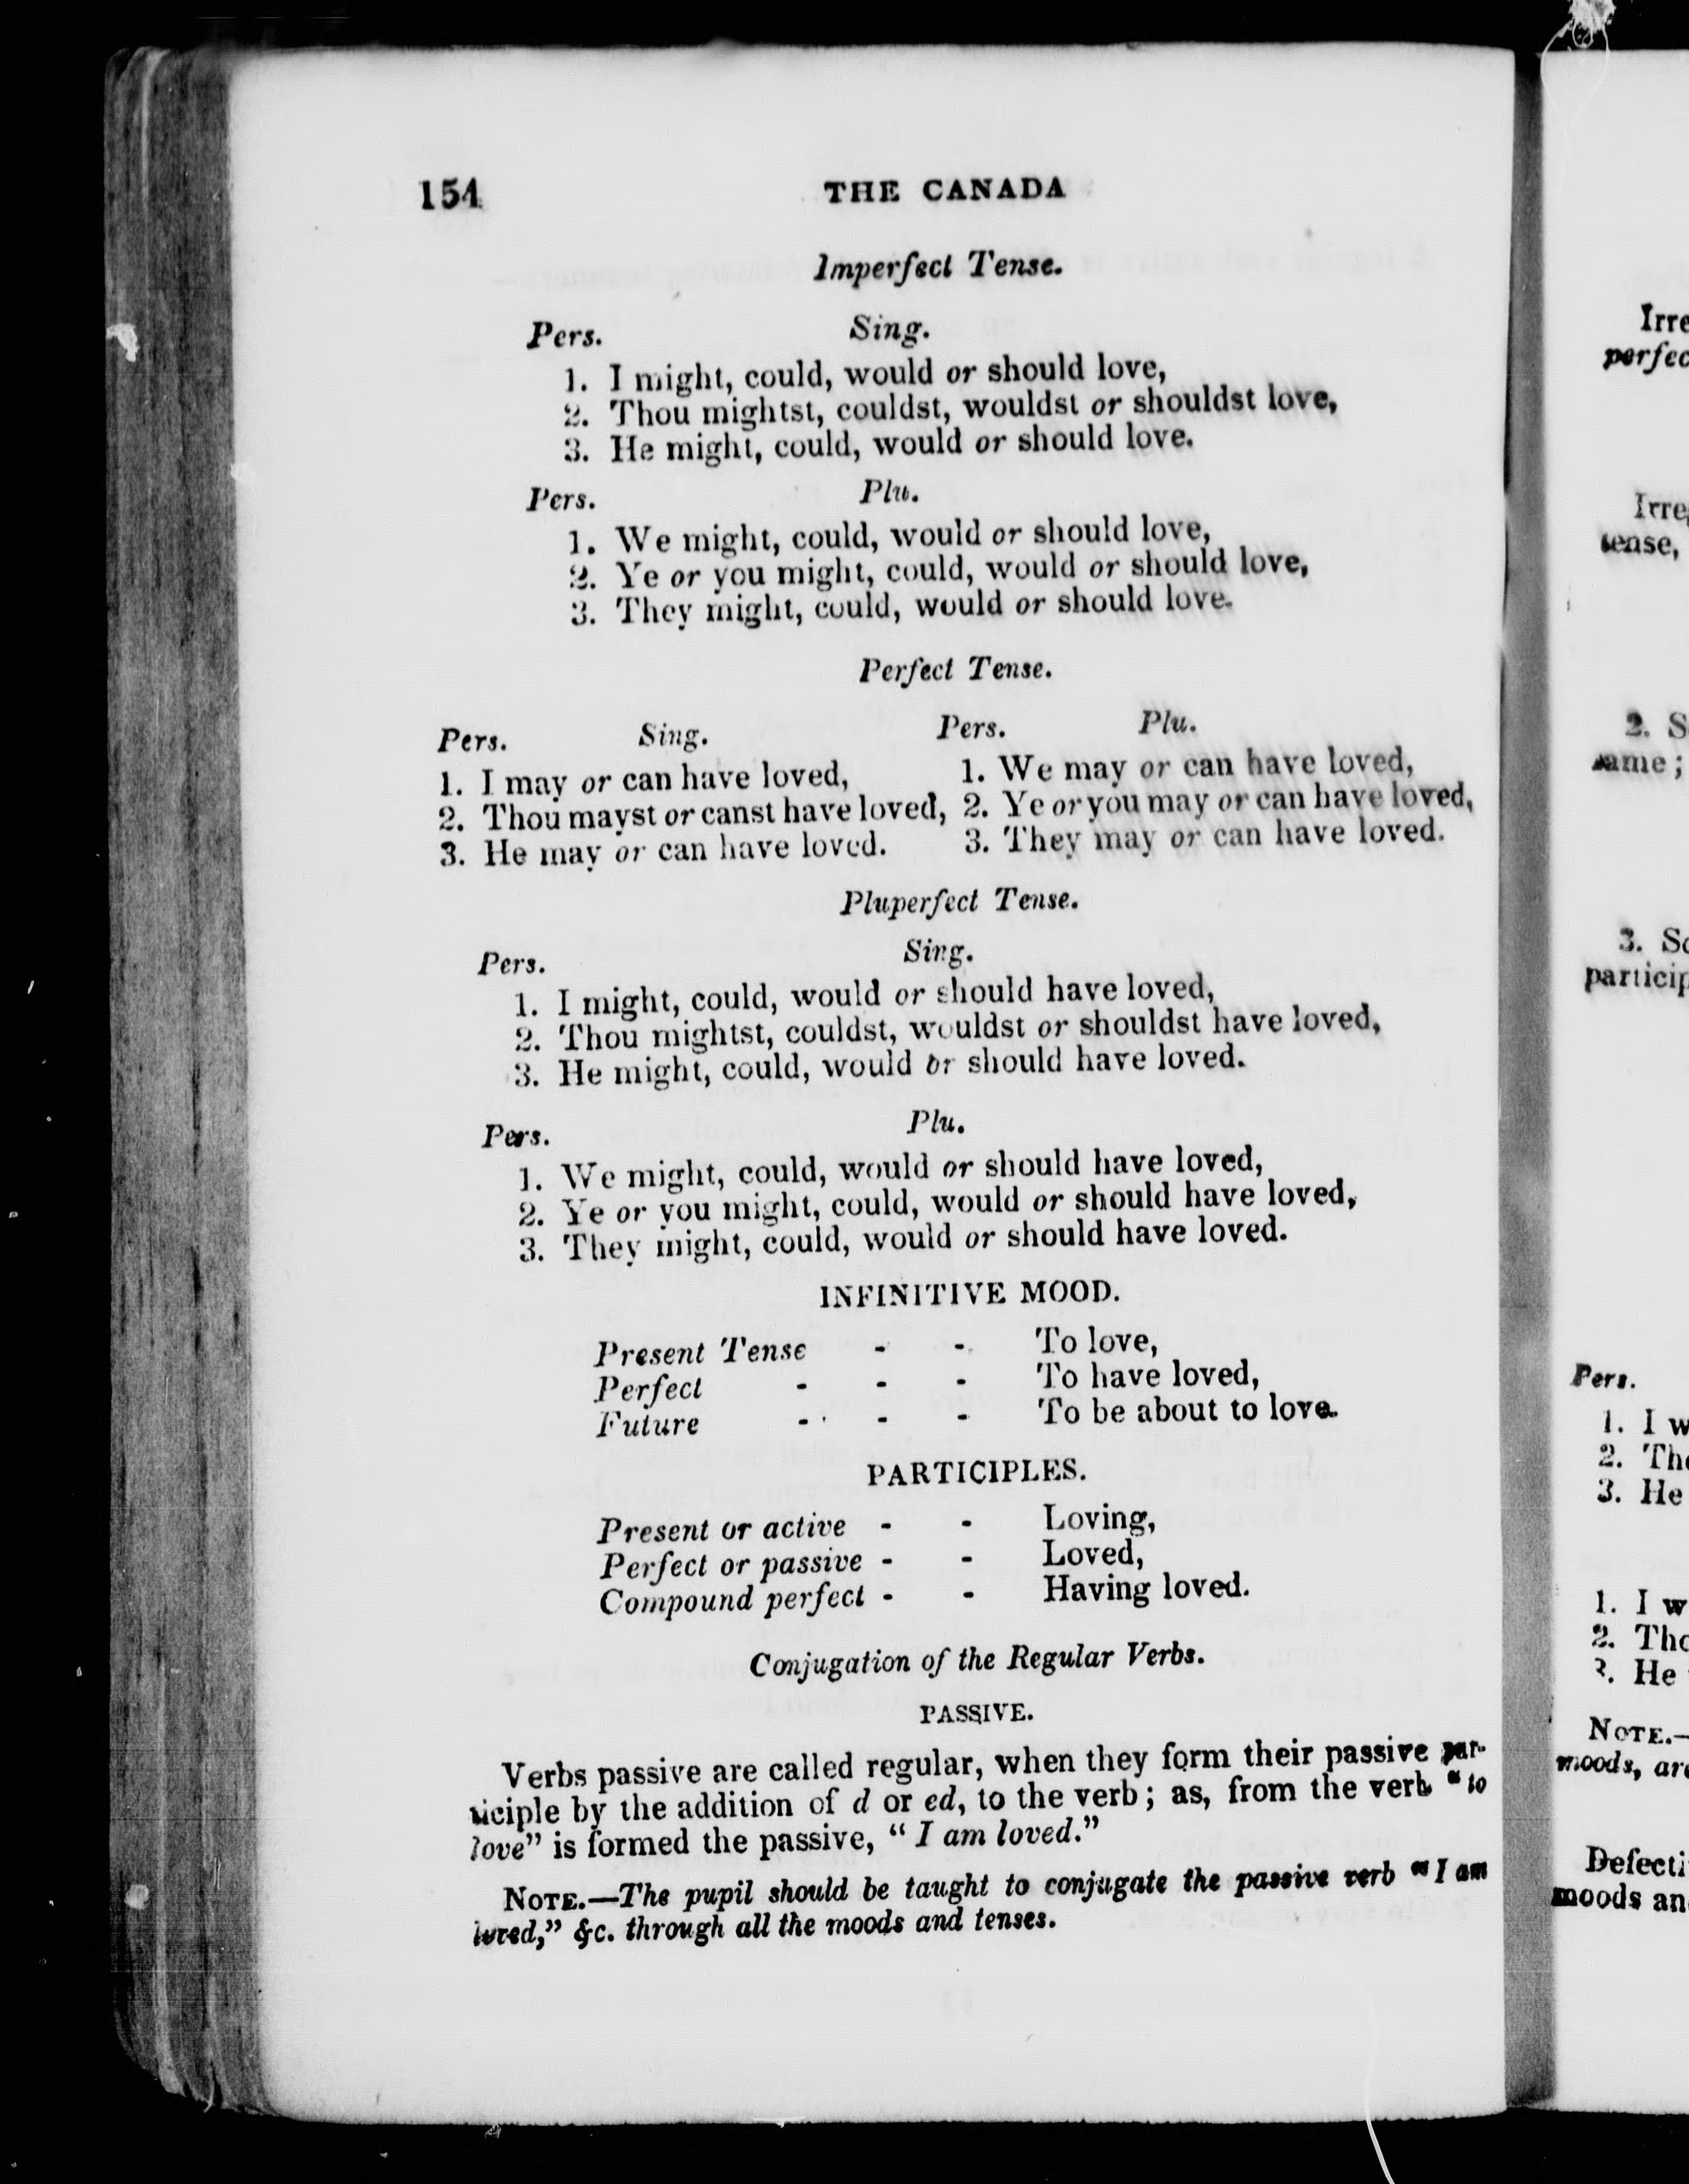 154
THE CANADA
Imperfect Tense.
Pers. Sing.
1. I might, could, would or should love,
2. Thou mightst, couldst, wouldst or shouldst love,
3. He might, could, would or should love.
Pers. Plu.
1. We might, could, would or should love,
2. Ye or you might, could, would or should love,
3. They might, could, would or should love.
Perfect Tense.
Pers. Sing. Pers. Plu.
1. I may or can have loved, 1. We may or can have loved,
2. Thou mayst or canst have loved, 2. Ye or you may or can have loved,
3. He may or can have loved. 3. They may or can have loved.
Pluperfect Tense.
Pers. Sing.
1. I might, could, would or should have loved,
2. Thou mightst, couldst, wouldst or shouldst have loved,
3. He might, could, would or should have loved.
Pers. Plu.
1. We might, could, would or should have loved,
2. Ye or you might, could, would or should have loved,
3. They might, could, would or should have loved.
INFINITIVE MOOD.
Present Tense - - To love,
Perfect - - - To have loved,
Future - - - To be about to love.
PARTICIPLES.
Present or active - - Loving,
Perfect or passive - - Loved,
Compound perfect - - Having loved.
Conjugation of the Regular Verbs.
PASSIVE.
Verbs passive are called regular, when they form their passive par-
ticiple by the addition of d or ed, to the verb; as, from the verb "to
love" is formed the passive, "I am loved."
NOTE.—The pupil should be taught to conjugate the passive verb "I am
loved," &c. through all the moods and tenses.
Irre
perfec
Irre
tense,
2. S
same;
3. So
particip
Pers.
1. I w
2. Tho
3. He
1. I w
2. Tho
3. He
NOTE.—
moods, are
Defecti
moods an